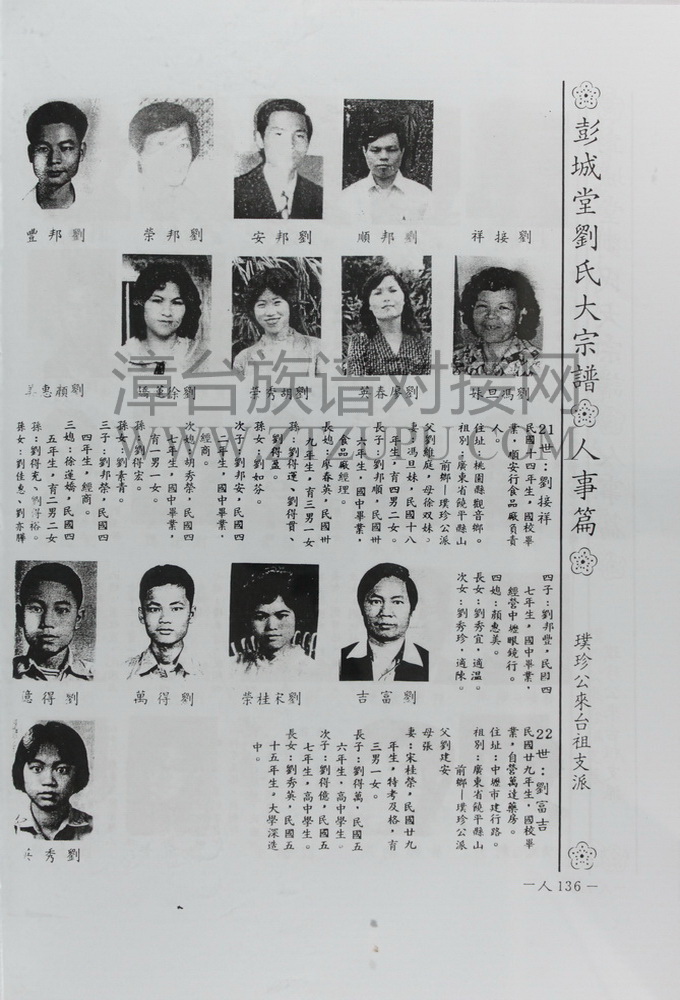 彭城堂劉氏大宗譜 人事篇
璞珍公來台祖支派
一人136一
劉接祥
劉邦順
劉邦安
劉邦榮
劉邦豐
劉馮旦妹
劉廖春英
劉胡秀榮
劉徐蓮嬌
劉顏惠美
21世：劉接祥
民國十四年生，國校畢
業，順安行食品廠負責
人。
住址：桃園縣觀音鄉。
祖別：廣東省饒平縣山
前鄉—璞珍公派
父劉維庭，母徐双妹。
妻：馮旦妹，民國十八
年生，育四男二女。
長子：劉邦順，民國卅
六年生，國中畢業，
食品廠經理。
長媳：廖春英，民國卅
九年生，育三男一女
孫：劉得運、劉得貫、
劉得盈。
孫女：劉如芬。
次子：劉邦安，民國四
二年生，國中畢業，
經商。
次媳：胡秀榮，民國四
七年生，國中畢業，
育一男一女。
孫：劉得宏。
孫女：劉素青。
三子：劉邦榮，民國四
四年生，經商。
三媳：徐蓮嬌，民國四
五年生，育二男二女
孫：劉得充、劉得裕。
孫女：劉佳惠、劉亦驊
四子：劉邦豐，民國四
七年生，國中畢業，
經營中壢眼鏡行。
四媳：顏惠美。
長女：劉秀宜，適溫。
次女：劉秀珍，適陳。
劉富吉
劉宋桂榮
劉得萬
劉得億
22世：劉富吉
民國廿九年生，國校畢
業，自營萬達藥房。
住址：中壢市建行路。
祖別：廣東省饒平縣山
前鄉—璞珍公派
父劉建安
母張
妻：宋桂榮，民國廿九
年生，特考及格，育
三男一女。
長子：劉得萬，民國五
六年生，高中學生。
次子：劉得億，民國五
七年生，高中學生。
長女：劉秀英，民國五
十五年生，大學深造
中。
劉秀
漳台族谱对接网
WWW.ZTZUPU.COM